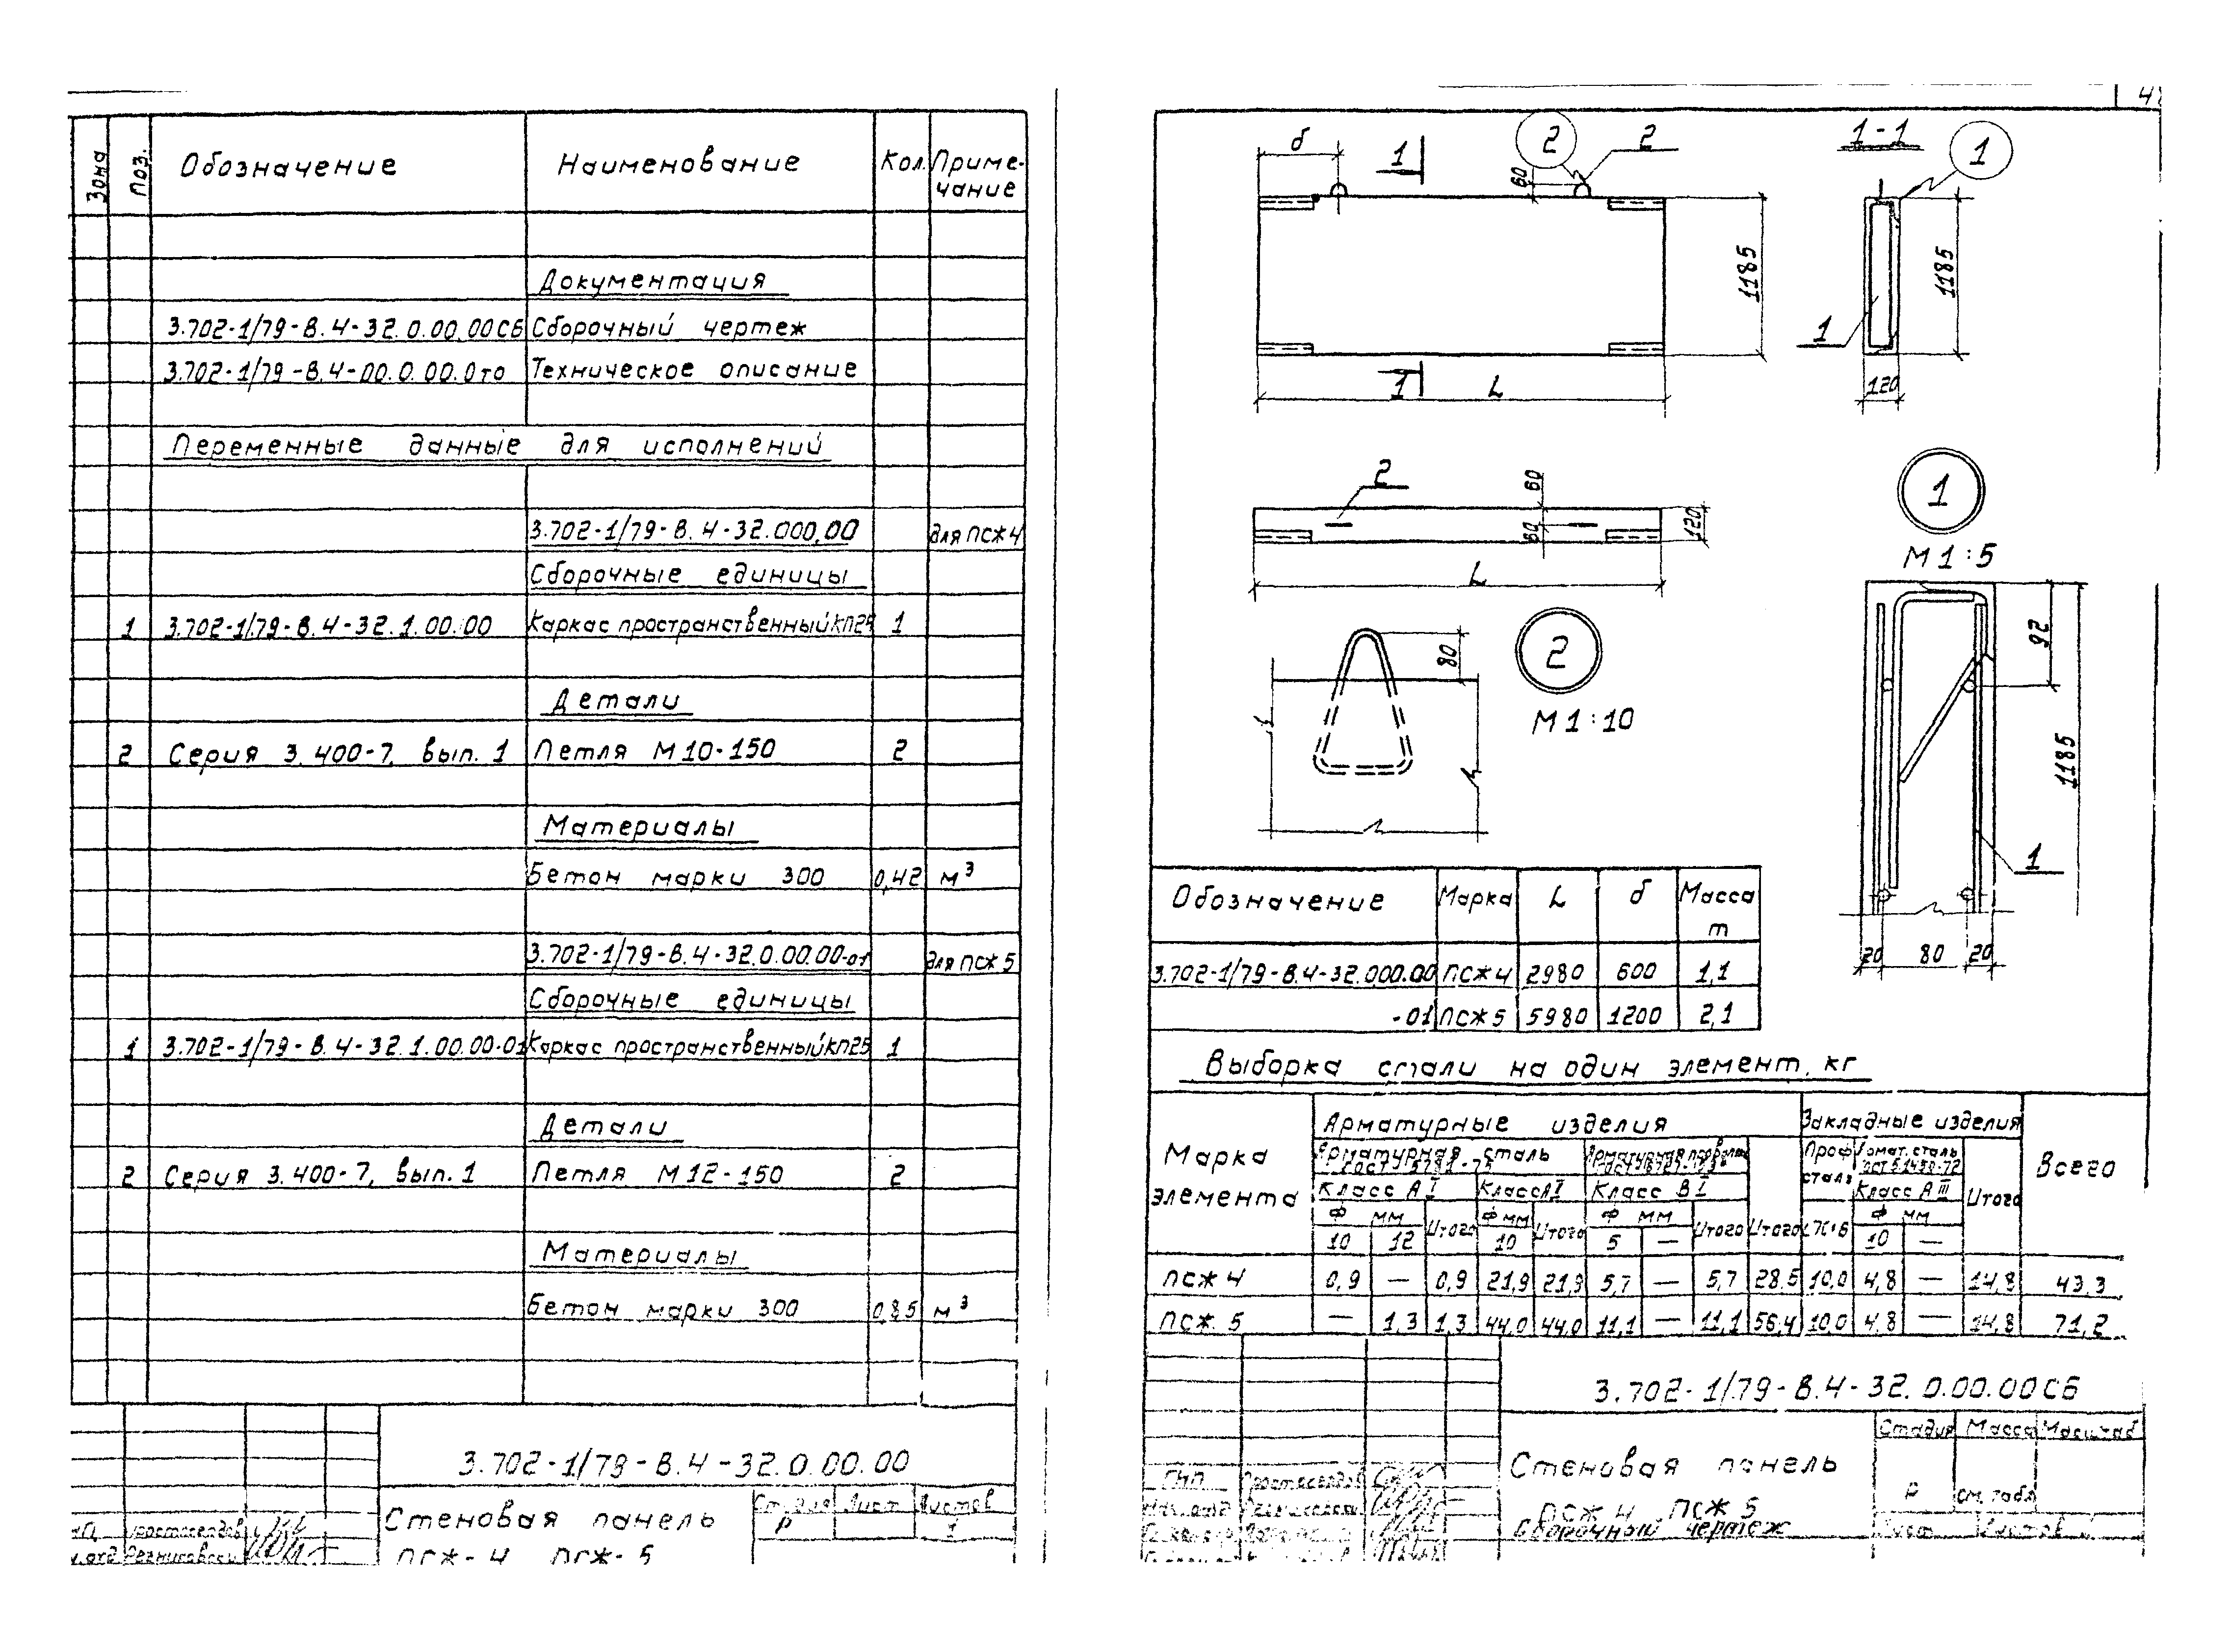 Зона Поз. Обозначение Наименование Кол. Приме-
чание
Документация
3.702-1/79-В.4-32.0.00.00СБ Сборочный чертеж
3.702-1/79-В.4-00.0.00.0то Техническое описание
Переменные данные для исполнений
3.702-1/79-В.4-32.000.00 для ПСЖ4
Сборочные единицы
1 3.702-1/79-В.4-32.1.00.00 Каркас пространственный 1
Детали
2 Серия 3.400-7, вып. 1 Петля М10-150 2
Материалы
Бетон марки 300 0,42 м³
3.702-1/79-В.4-32.0.00.00-01 для ПСЖ5
Сборочные единицы
1 3.702-1/79-В.4-32.1.00.00-01 Каркас пространственный КП25 1
Детали
2 Серия 3.400-7, вып. 1 Петля М12-150 2
Материалы
Бетон марки 300 0,85 м³
3.702-1/79-В.4-32.0.00.00
Стеновая панель
ПСЖ-4 ПСЖ-5
Стадия Лист Листов
Р 1
б 1 60 2 2 1-1 1
1185 1185
1
1 L 120
2 60 60 120
L
1
М 1:5
80 2
М 1:10
92
1185
1
20 80 20
Обозначение Марка L б Масса
т
3.702-1/79-В.4-32.000.00 ПСЖ4 2980 600 1,1
-01 ПСЖ5 5980 1200 2,1
Выборка стали на один элемент, кг
Марка
элемента
Арматурные изделия Закладные изделия Всего
Арматурная сталь
Класс АI Класс ВI Проф. сталь Класс АIII
Ф мм Итого Ф мм Итого Ф мм Итого Итого Ф мм Итого
10 12 10 5 — 10 —
ПСЖ4 0,9 — 0,9 21,9 21,9 5,7 — 5,7 28.5 10,0 4,8 — 14,8 43,3
ПСЖ.5 — 1,3 1,3 44,0 44,0 11,1 — 11,1 56,4 10,0 4,8 — 14,8 71,2
3.702-1/79-В.4-32.0.00.00СБ
Стеновая панель
ПСЖ4 ПСЖ5
Сборочный чертеж
Стадия Масса Масштаб
Р см.табл
Лист Листов
ГИП